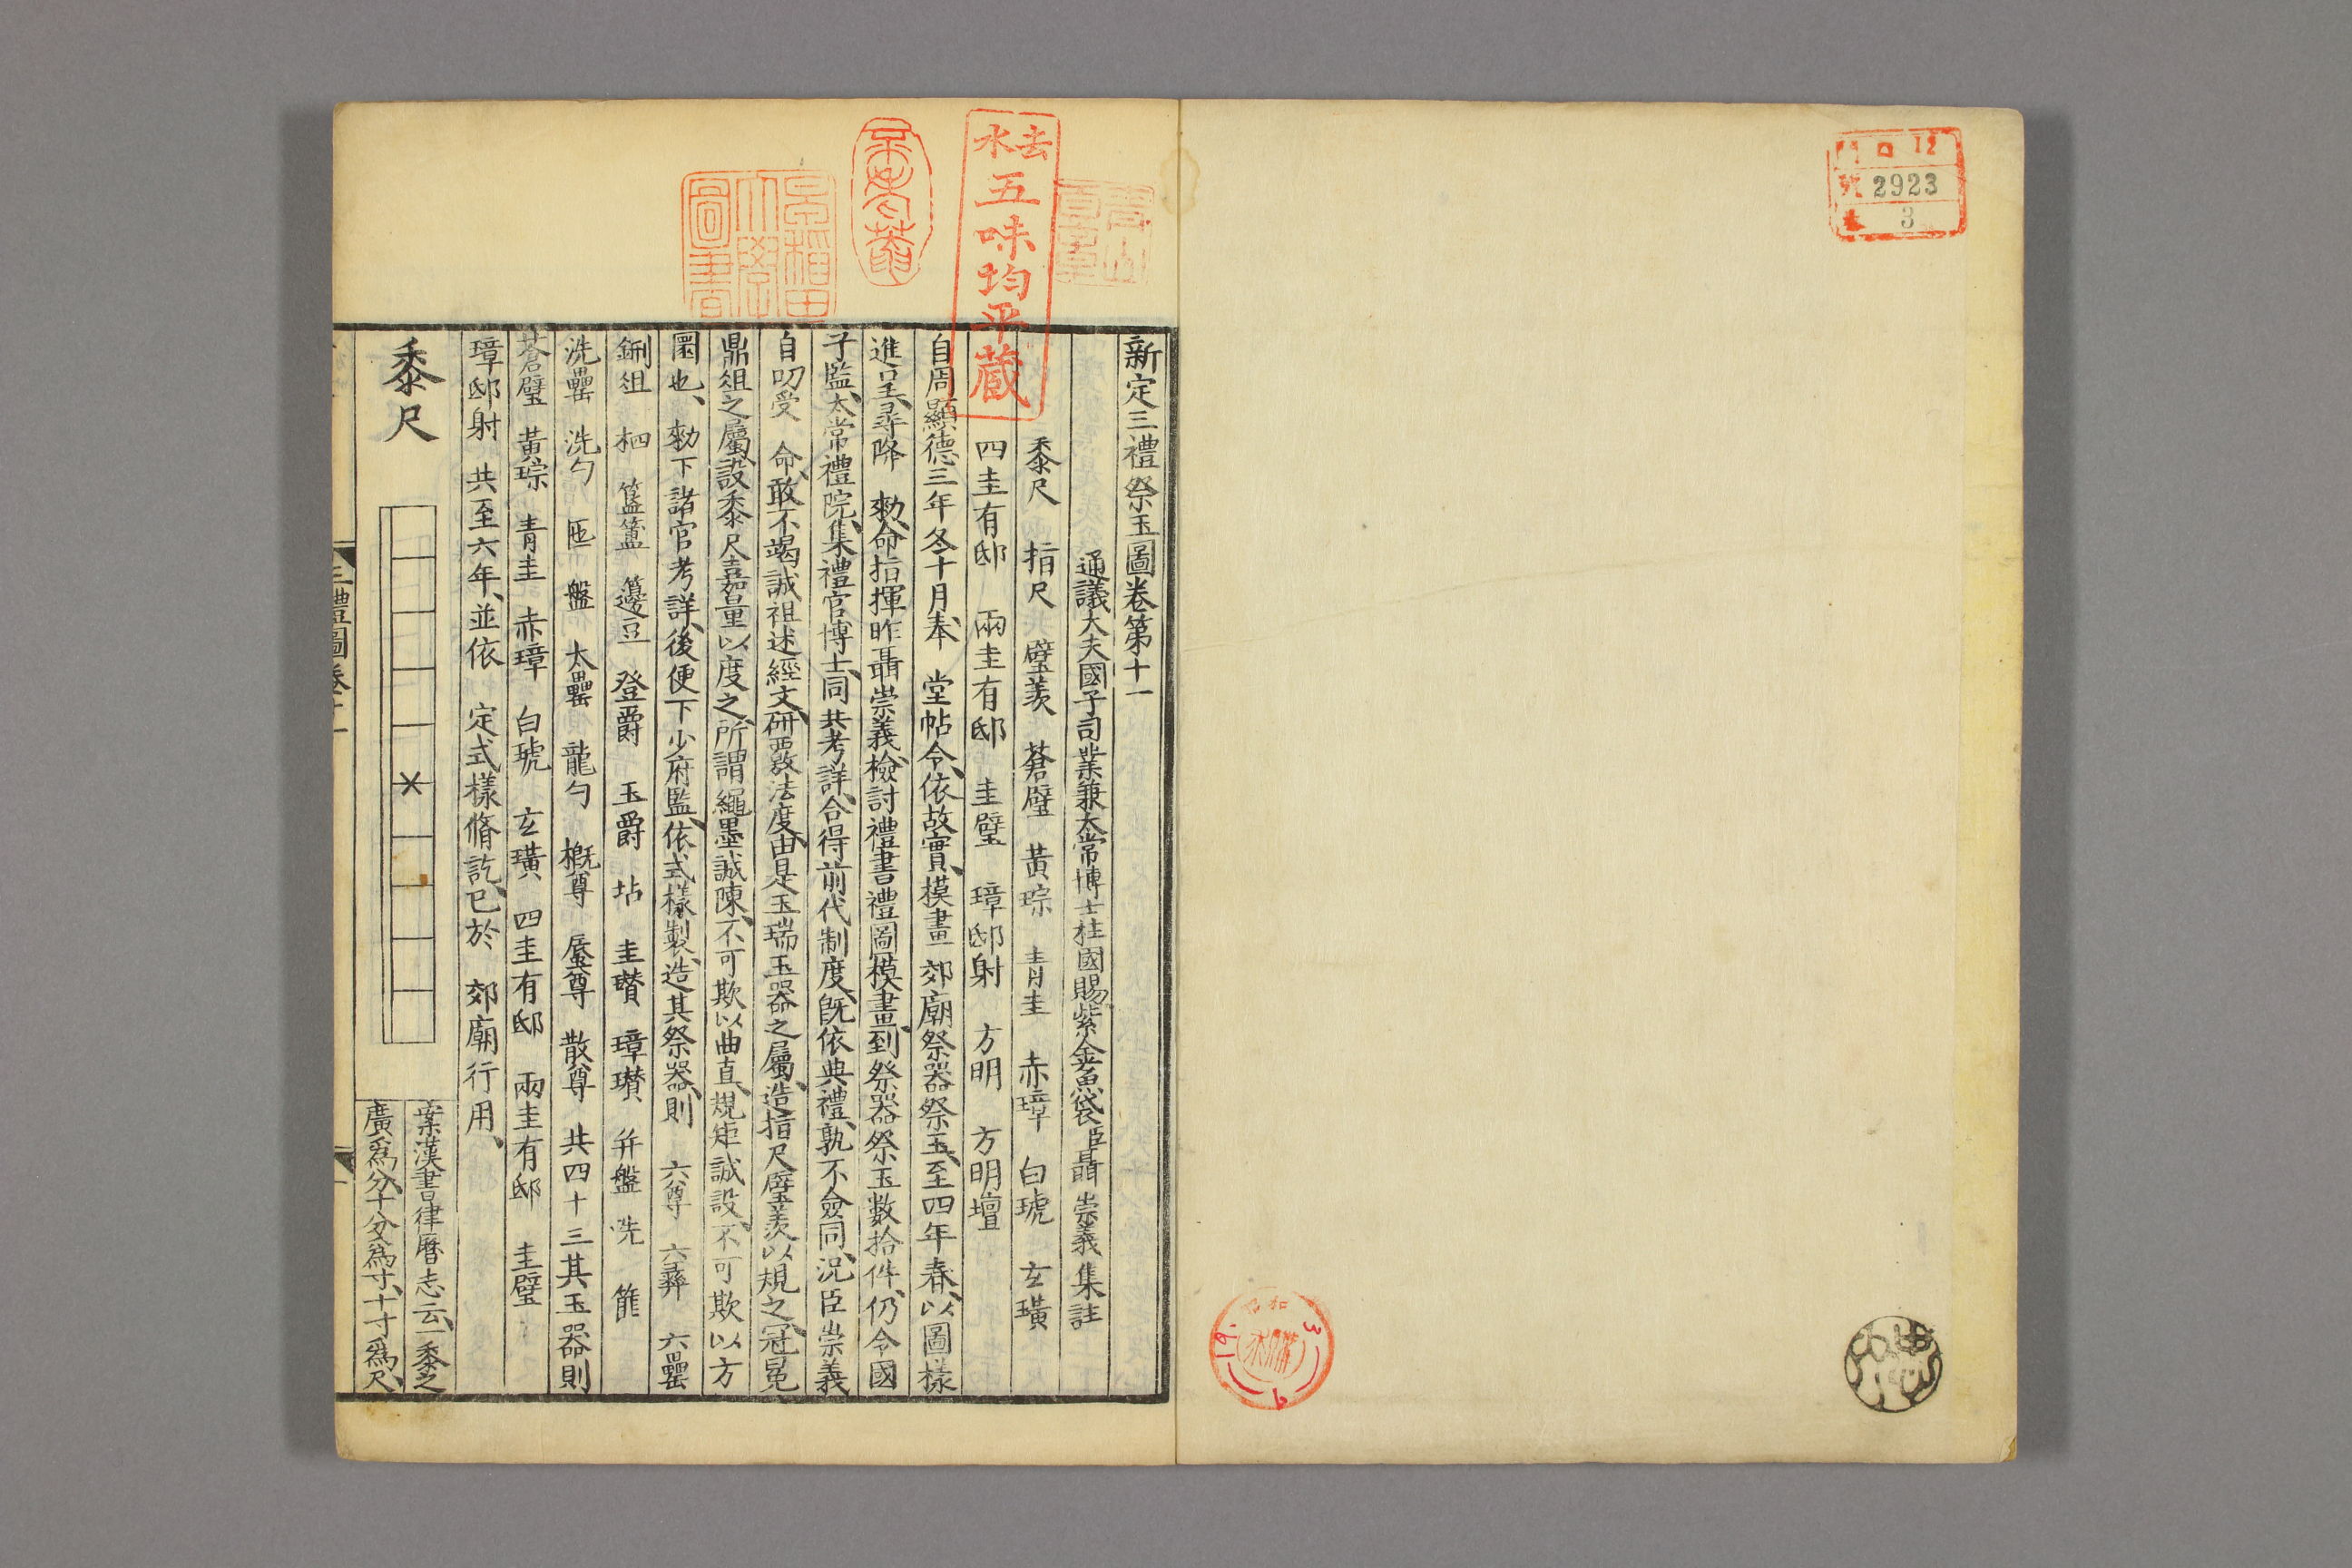 12
號 2923
3
去水
五味均平藏
早稻田大學圖書
新定三禮祭玉圖卷第十一
通議大夫國子司業兼太常博士柱國賜紫金魚袋臣聶崇義集註
黍尺 指尺 璧羨 蒼璧 黃琮 青圭 赤璋 白琥 玄璜
四圭有邸 兩圭有邸 圭璧 璋邸射 方明 方明壇
自周顯德三年冬十月奉 堂帖令依故實模畫 郊廟祭器祭玉至四年春以圖樣
進呈尋降 勑命指揮昨聶崇義檢討禮書禮圖模畫到祭器祭玉數拾件仍令國
子監太常禮院集禮官博士同共考詳合得前代制度旣依典禮孰不僉同況臣崇義
自叨受 命敢不竭誠祖述經文研覈法度由是玉瑞玉器之屬造指尺璧羨以規之冠冕
鼎俎之屬設黍尺嘉量以度之所謂繩墨誠陳不可欺以曲直規矩誠設不可欺以方
圜也 勑下諸官考詳後便下少府監依式樣製造其祭器則 六尊 六彝 六罍
鉶俎 柶 簠簋 籩豆 登爵 玉爵 坫 圭瓚 璋瓚 并盤 洗 篚
洗罍 洗勺 匜 盤 太罍 龍勺 概尊 蜃尊 散尊 共四十三其玉器則
蒼璧 黃琮 青圭 赤璋 白琥 玄璜 四圭有邸 兩圭有邸 圭璧
璋邸射 共至六年並依 定式樣脩訖已於 郊廟行用
黍尺
案漢書律曆志云一黍之
廣爲分十分爲寸十寸爲尺
三禮圖卷十一